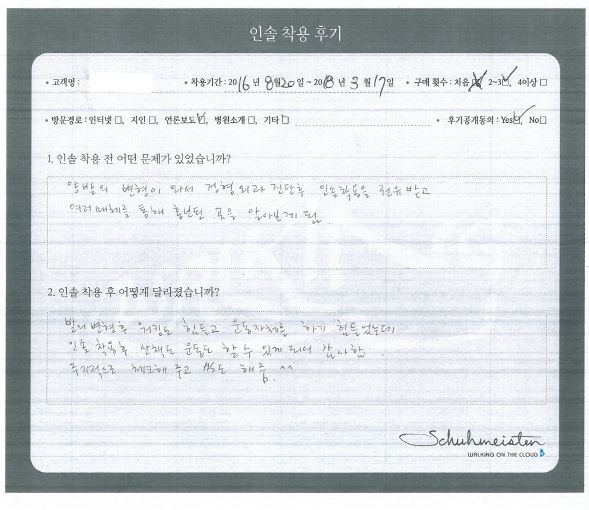 인솔 착용 후기
• 고객명 : • 착용기간 : 2016년 8월20일 ~ 2018년 3월 17일 • 구매 횟수 : 처음☒ 2~3☑ 4이상☐
• 방문경로 : 인터넷☐, 지인☐, 언론보도☑, 병원소개☐, 기타☐ • 후기공개동의 : Yes☑ No☐
1. 인솔 착용 전 어떤 문제가 있었습니까?
양발의 변형이 와서 정형외과 진단후 인솔착용을 권유받고
여러매체를 통해 홍보된 곳을 알아보게 됨.
2. 인솔 착용 후 어떻게 달라졌습니까?
발의변형후 워킹도 힘들고 운동자체를 하기 힘들었는데
인솔 착용후 산책도 운동도 할 수 있게 되어 감사함.
주기적으로 체크해 주고 AS도 해줌. ^^
Schuhmeister
WALKING ON THE CLOUD